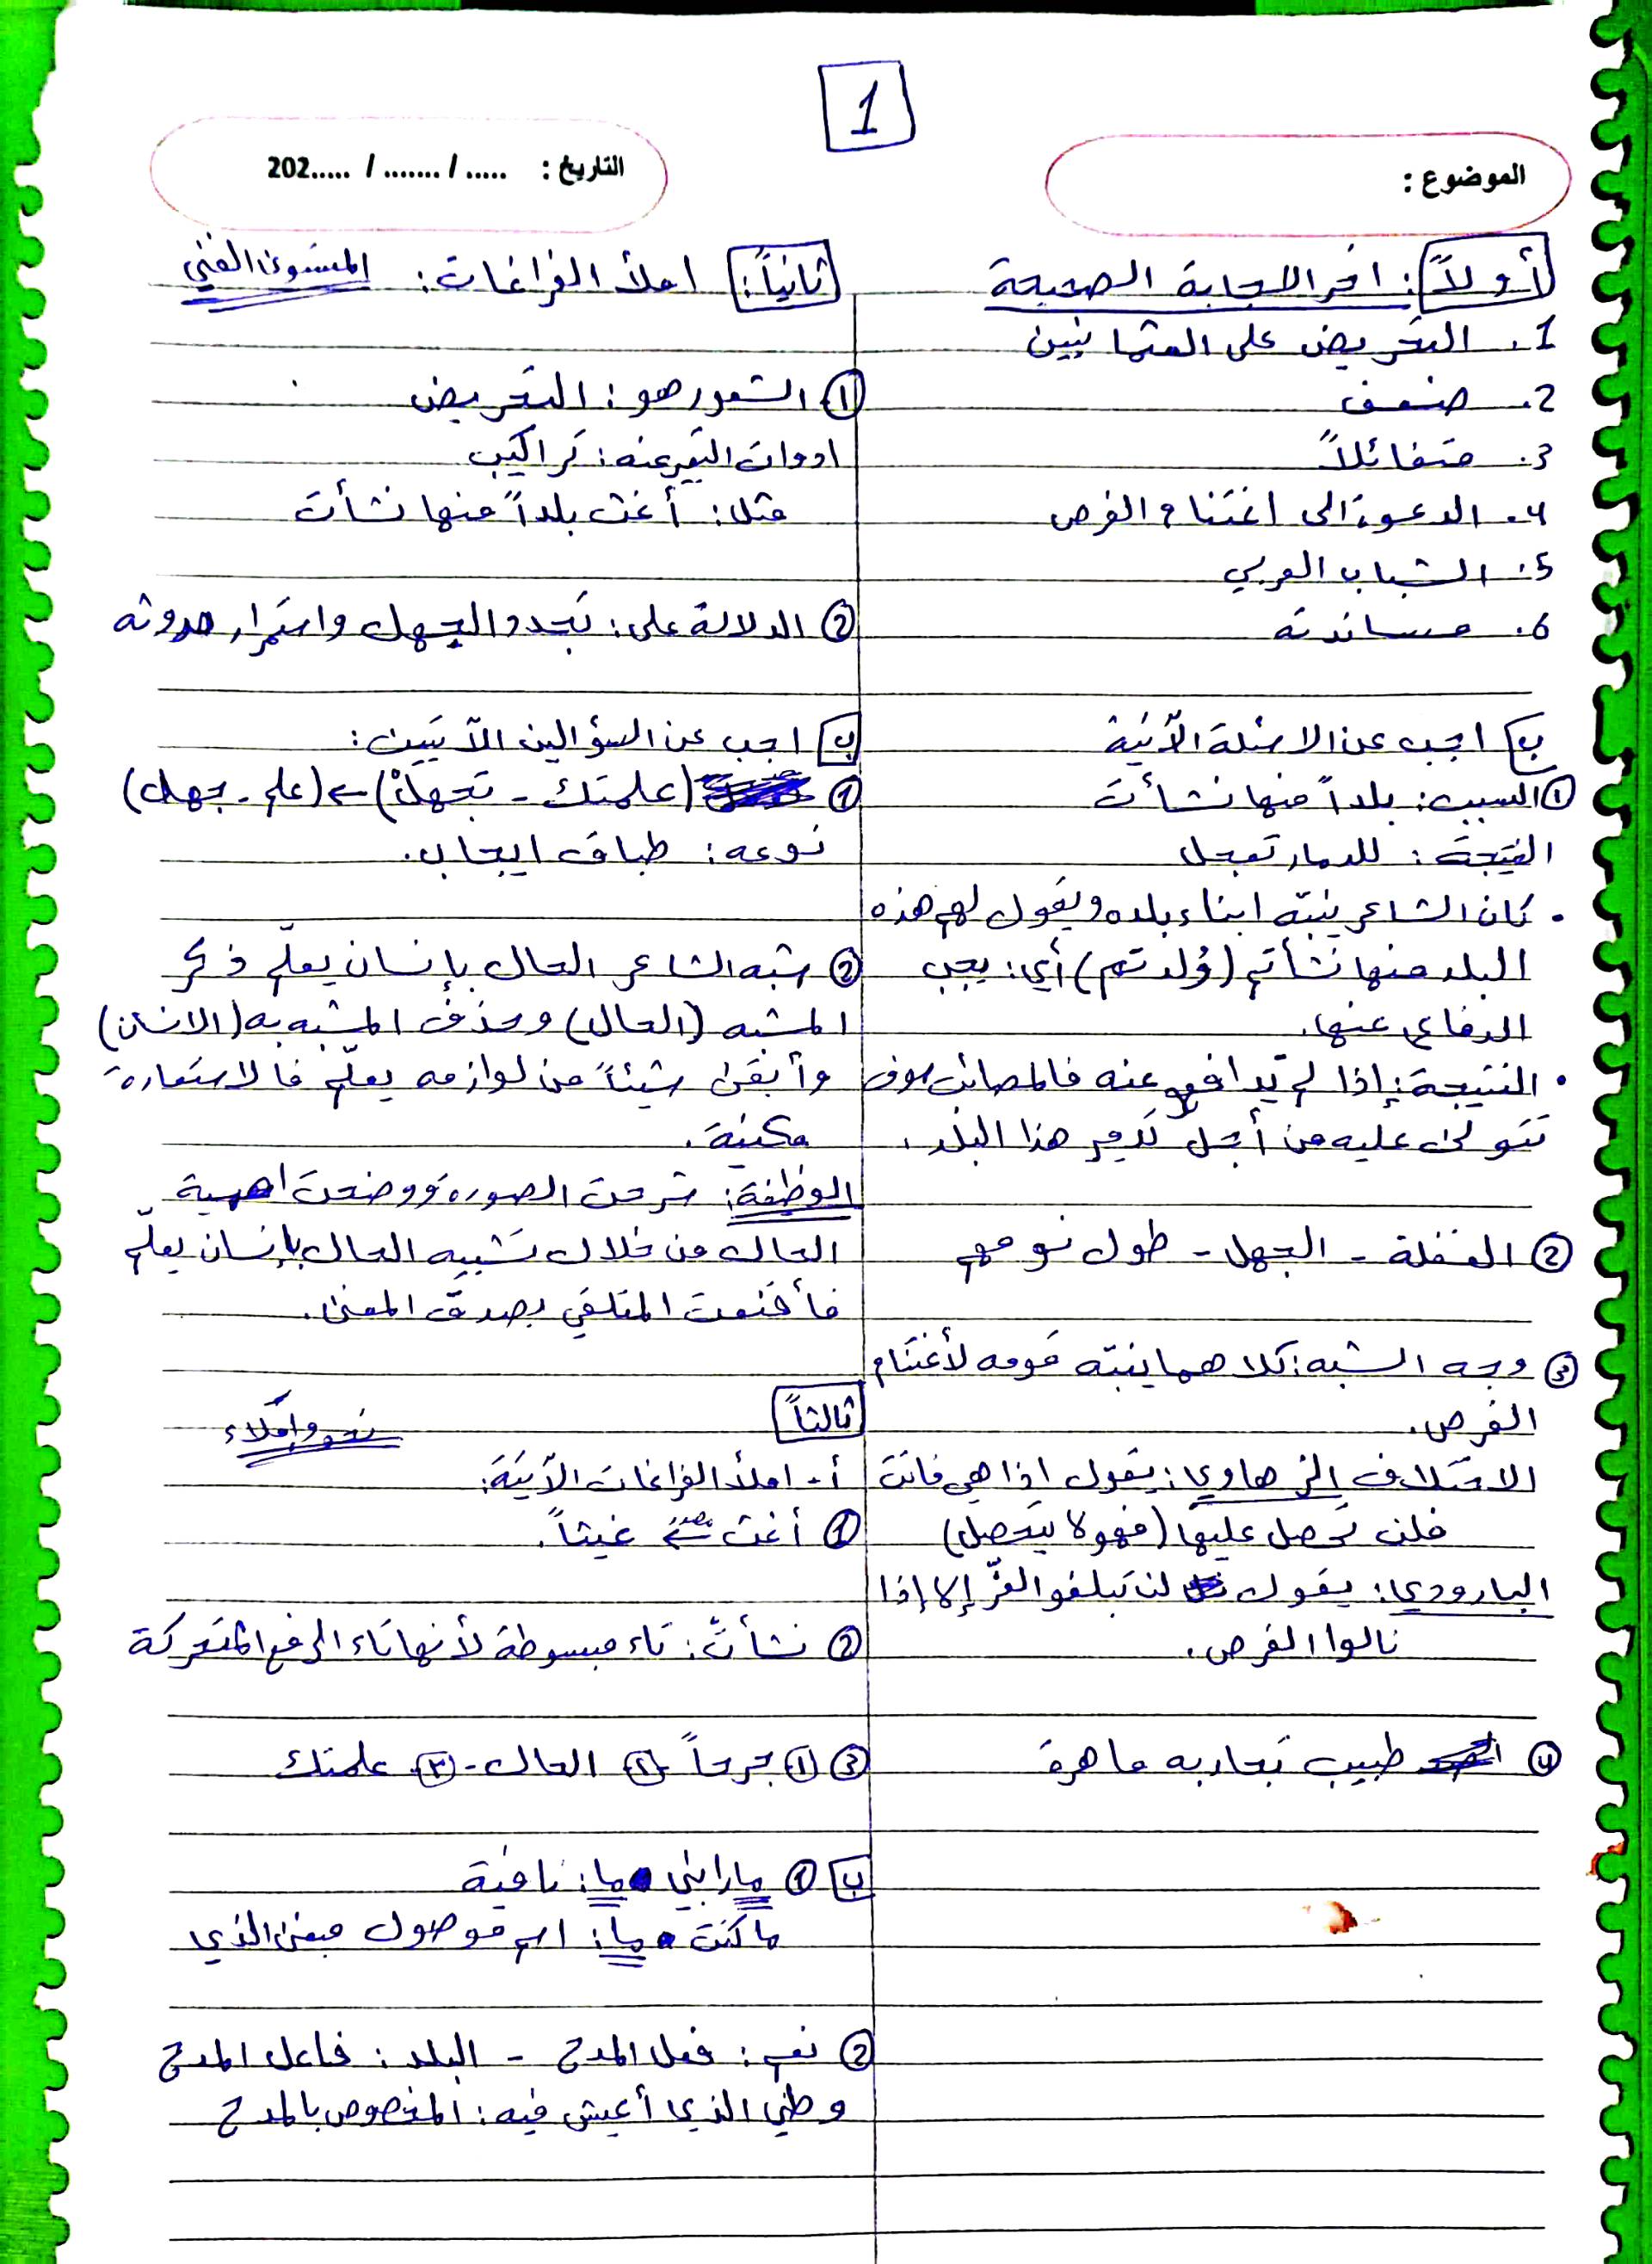 1
الموضوع :
التاريخ : ..... / ....... / .....202
أولاً: اختر الاجابة الصحيحة
1. التحريض على العثمانيين
2. ضعف
3. متفائلاً
4. الدعوة الى اغتنام الفرص
5. الشباب العربي
6. مساندته
ب اجب عن الاسئلة الآتية
① السبب: بلداً منها نشأت
النتيجة: للدمار تعجل
. كان الشاعر ينبّه ابناء بلده ويقول لهم هذه
البلد منها نشأتم (وُلدتم) أي: يجب
الدفاع عنها.
. النتيجة: إذا لم تدافعو عنه فالمصائب سوف
تتوالى عليه من أجل تدمير هذا البلد.
② الغفلة - الجهل - طول نومهم
③ وجه الشبه: كلاهما ينبّه قومه لأغتنام
الفرص.
الاختلاف الزهاوي: يقول إذا هي فاتت
فلن تحصل عليها (فهو لا يتحصل)
البارودي: يقول لن تبلغوا العزّ إلا إذا
نالوا الفرص.
④ طبيب تجاربه ماهرة
ثانياً: املأ الفراغات: المستوى الفني
① الشعور هو: التحريض
ادوات التعبير عنه: تراكيب
مثل: أغث بلداً منها نشأت
② الدلالة على: تجدد الجهل واستمرار حدوثه
ب اجب عن السؤالين الآتيين:
① (علمتك - تجهل) ← (علم - جهل)
نوعه: طباق ايجاب.
② شبه الشاعر الحال بإنسان يعلّم ذكر
المشبه (الحال) وحذف المشبه به (الانسان)
وأبقى شيئاً من لوازمه يعلّم فالاستعارة
مكنية.
الوظيفة: شرحت الصورة ووضحت اهمية
الحال من خلال تشبيه الحال بإنسان يعلّم
فأقنعت المتلقي بصدق المعنى.
ثالثاً نحو وإملاء
أ- املأ الفراغات الآتية:
① أغث مصدر غيثاً.
② نشأتْ: تاء مبسوطة لأنها تاء الرفع المتحركة
③ ① جرحاً ② الحال - ③ علمتك
ب ① ما رابني ما: نافية
ما كنت ما: اسم موصول بمعنى الذي
② نعم: فعل المدح - البلد: فاعل المدح
وطني الذي أعيش فيه: المخصوص بالمدح